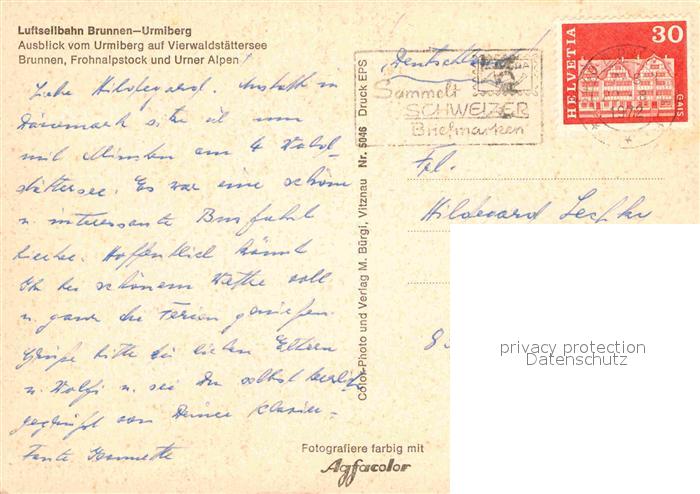 Luftseilbahn Brunnen—Urmiberg
Ausblick vom Urmiberg auf Vierwaldstättersee
Brunnen, Frohnalpstock und Urner Alpen
Liebe Hildegard. Anstatt in
Dänemark sitze ich nun
mit Münsters am 4 Wald-
stättersee. Es war eine schöne
u. interessante Busfahrt
hierher. Hoffentlich könnt
Ihr bei schönem Wetter voll
u. ganz die Ferien genießen.
Grüße bitte die lieben Eltern
u. Wolfi u. sei Du selbst herzlich
gegrüßt von Deiner Klavier-
Tante
Fotografiere farbig mit
Agfacolor
Color-Photo und Verlag M. Bürgi, Vitznau Nr. 5046 Druck EPS
Deutschland
Sammelt
SCHWEIZER
Briefmarken
HELVETIA
30
GAIS
Frl.
Hildegard
8
privacy protection
Datenschutz